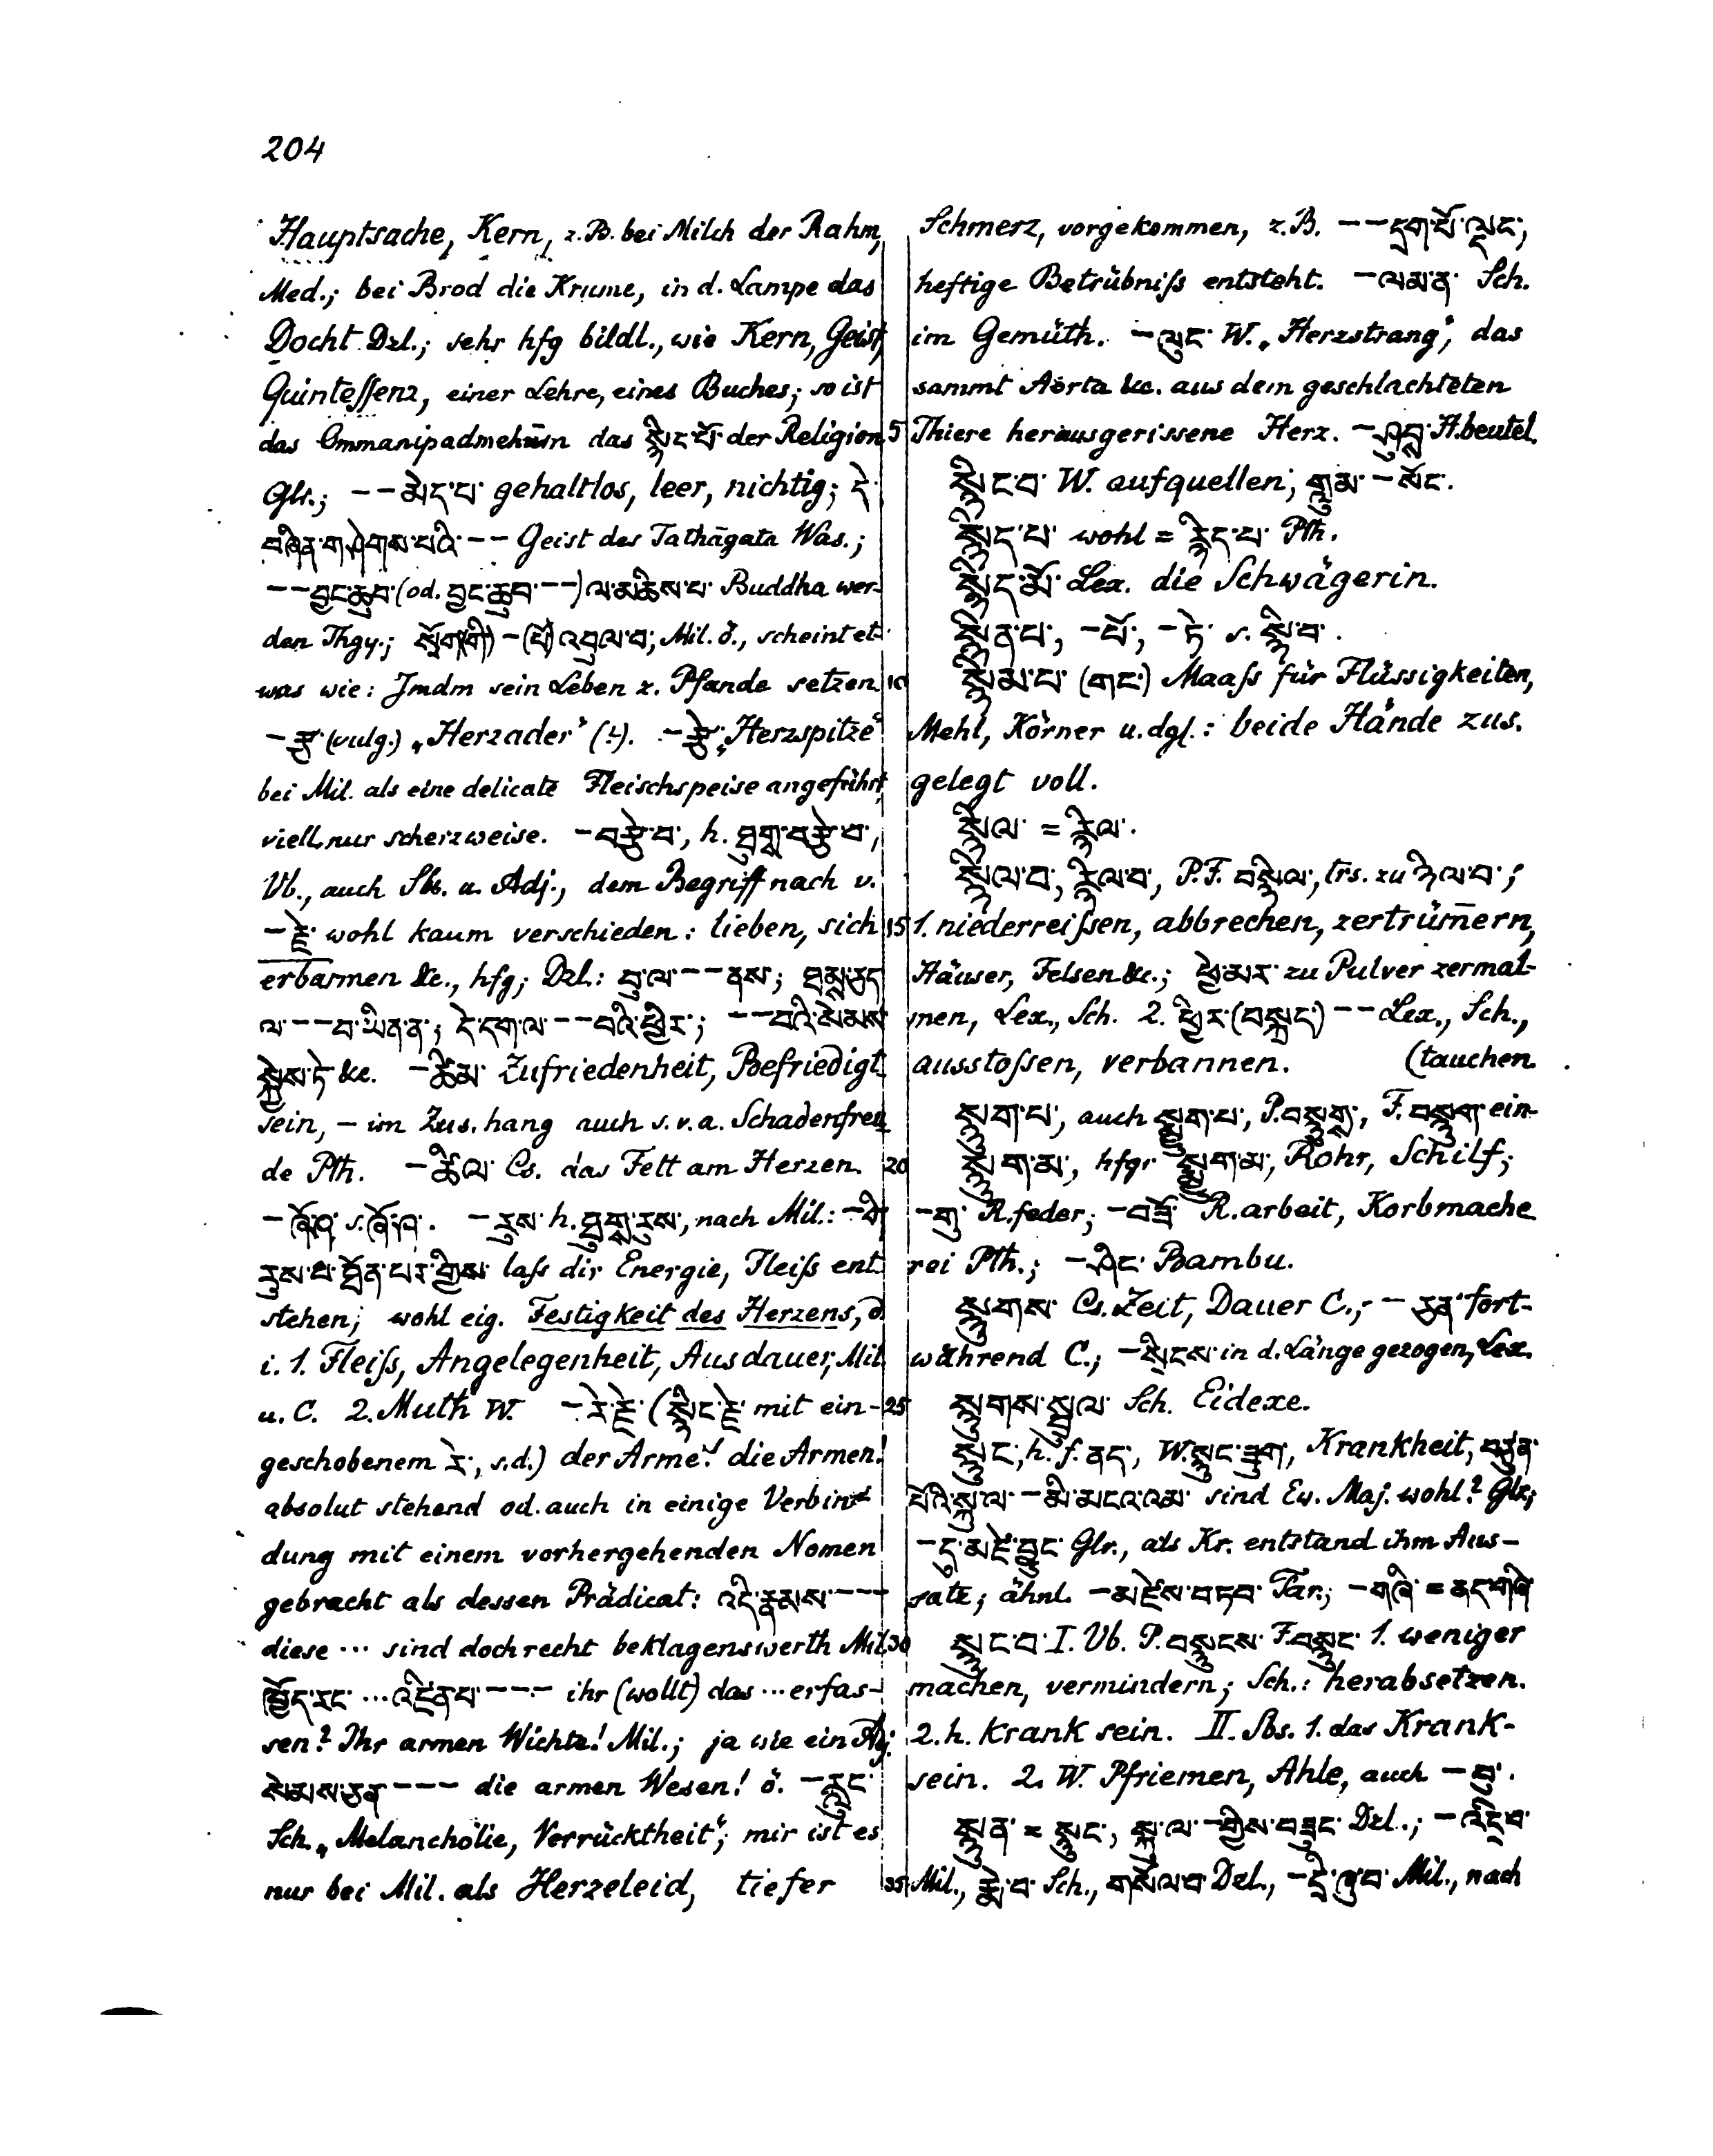 204
Hauptsache, Kern, z.B. bei Milch der Rahm,
Med.; bei Brod die Krume, in d. Lampe das
Docht Dzl.; sehr hfg bildl., wie Kern, Geist,
Quintessenz, einer Lehre, eines Buches; so ist
das Ommanipadmehūm das སྙིང་པོ་ der Religion
Glr.; – – མེད་པ་ gehaltlos, leer, nichtig; དེ་
བཞིན་གཤེགས་པའི་ – – Geist des Tathāgata Was.;
– – བྱང་ཆུབ་ (od. བྱང་ཆུབ་ – –) ལ་མཆིས་པ་ Buddha wer-
den Thgy.; སྲོག(གི) – (པོ) འབུལ་བ་, Mil. ö., scheint et-
was wie: Jmdm sein Leben z. Pfande setzen
– རྩ་ (vulg.) „Herzader“ (?). – རྩེ་ „Herzspitze“
bei Mil. als eine delicate Fleischspeise angeführt,
viell. nur scherzweise. – བརྩེ་བ་, h. ཐུགས་བརྩེ་བ་,
Vb., auch Sbs. u. Adj., dem Begriff nach v.
– རྗེ་ wohl kaum verschieden: lieben, sich
erbarmen &c., hfg; Dzl.: བུ་ལ་ – – ནས་; ཐམས་ཅད་
ལ་ – – བ་ཡིན་ན་; དེ་དག་ལ་ – – བའི་ཕྱིར་; – – བའི་སེམས་
སྐྱེས་ཏེ་ &c. – ཚིམ་ Zufriedenheit, Befriedigt-
sein, – im Zus.hang auch s.v.a. Schadenfreu-
de Pth. – ཚིལ་ Cs. das Fett am Herzen.
– ཞོ་ཤ་ s. ཞོ་ཤ་. – རུས་ h. ཐུགས་རུས་, nach Mil.: – གི་
རུས་པ་ཐོན་པར་གྱིས་ lass dir Energie, Fleiss ent-
stehen; wohl eig. Festigkeit des Herzens, d.
i. 1. Fleiss, Angelegenheit, Ausdauer, Mil.
u. C. 2. Muth W. – རེ་རྗེ་ (སྙིང་རྗེ་ mit ein-
geschobenem རེ་, s.d.) der Arme! die Armen!
absolut stehend od. auch in einige Verbin-
dung mit einem vorhergehenden Nomen
gebracht als dessen Prädicat: འདི་རྣམས་ – – –
diese ... sind doch recht beklagenswerth Mil.
ཁྱོད་རང་ ... འཛིན་པ་ – – – ihr (wollt) das ... erfas-
sen? Ihr armen Wichte! Mil.; ja wie ein Adj.
སེམས་ཅན་ – – – die armen Wesen! ö. – རླུང་
Sch. „Melancholie, Verrücktheit“; mir ist es
nur bei Mil. als Herzeleid, tiefer
Schmerz, vorgekommen, z.B. – – དྲག་པོ་ལྡང་,
heftige Betrübniss entsteht. – ལམ་ན་ Sch.
im Gemüth. – ལུང་ W. „Herzstrang“, das
sammt Aorta &c. aus dem geschlachteten
5 Thiere herausgerissene Herz. – ཤུབས་ H.beutel.
སྙིང་བ་ W. aufquellen; གླུམ་ – སོང་.
སྙིང་པ་ wohl = རྙིང་པ་ Pth.
སྙིང་མོ་ Lex. die Schwägerin.
སྙིན་པ་, – པོ་, – ཏེ་ s. སྙི་བ་.
10 སྙིམ་པ་ (གང་) Maass für Flüssigkeiten,
Mehl, Körner u. dgl.: beide Hände zus.
gelegt voll.
སྙིལ་ = རྙིལ་.
སྙིལ་བ་, རྙིལ་བ་, P.F. བསྙིལ་, trs. zu ཉིལ་བ་;
15 1. niederreissen, abbrechen, zertrüm̄ern,
Häuser, Felsen &c.; ཕྱེ་མར་ zu Pulver zermal-
men, Lex., Sch. 2. ཕྱིར་ (བསྐྲད་) – – Lex., Sch.,
ausstossen, verbannen. (tauchen.
སྙུག་པ་, auch སྨྱུག་པ་, P. བསྙུགས་, F. བསྙུག་ ein-
20 སྙུག་མ་, hfgr སྨྱུག་མ་, Rohr, Schilf;
– གུ་ R.feder; – བཟོ་ R.arbeit, Korbmache
rei Pth.; – ཤིང་ Bambu.
སྙུགས་ Cs. Zeit, Dauer C.; – ཅན་ fort-
während C.; – སྲིངས་ in d. Länge gezogen, Lex.
25 སྙུགས་སྦྲུལ་ Sch. Eidexe.
སྙུང་, h. f. ནད་, W. སྙུང་ཟུག་, Krankheit, བཙུན་
པོའི་སྐུ་ལ་ – མི་མངའ་འམ་ sind Ew. Maj. wohl? Glr,;
– དུ་མཛེ་བྱུང་ Glr., als Kr. entstand ihm Aus-
satz; ähnl. – མཛེས་བཏབ་ Tar.; – གཞི་ = ནད་གཞི་
30 སྙུང་བ་ I. Vb. P. བསྙུངས་ F. བསྙུང་ 1. weniger
machen, vermindern; Sch.: herabsetzen.
2. h. krank sein. II. Sbs. 1. das Krank-
sein. 2. W. Pfriemen, Ahle, auch – བུ་.
སྙུན་ = སྙུང་, སྐུ་ལ་ – གྱིས་བཟུང་ Dzl.; – འདྲི་བ་
35 Mil., རྨེ་བ་ Sch., གསོལ་བ་ Dzl., – དྲི་ཞུ་བ་ Mil., nach